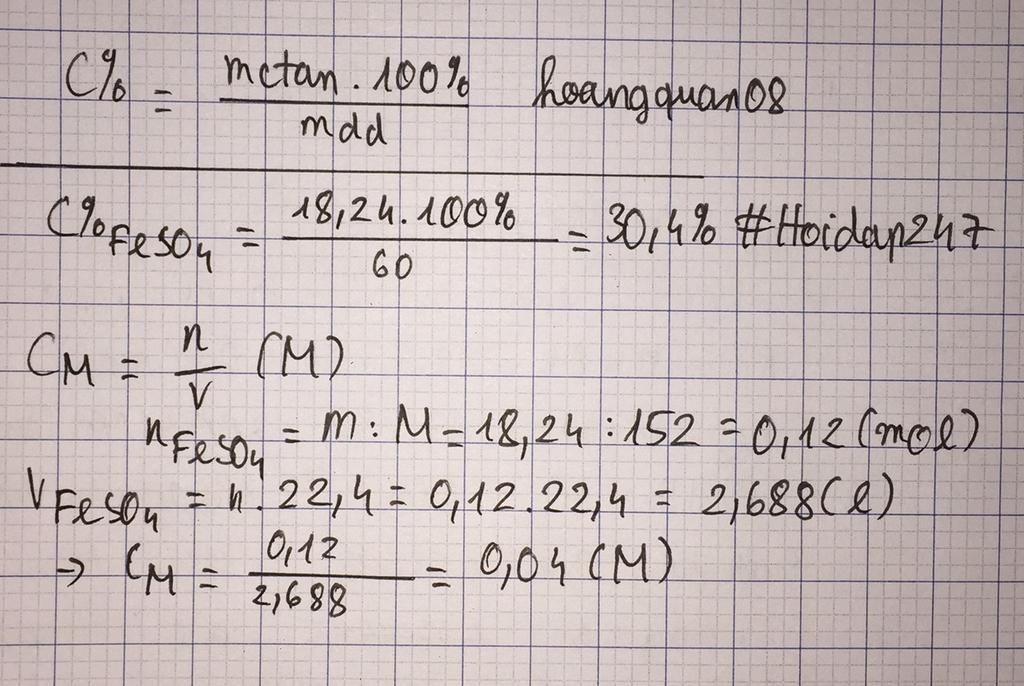 C% = mctan . 100% / mdd hoangquan08
C%FeSO4 = 18,24 . 100% / 60 = 30,4% #Hoidap247
CM = n / V (M)
nFeSO4 = m : M = 18,24 : 152 = 0,12 (mol)
VFeSO4 = n . 22,4 = 0,12 . 22,4 = 2,688 (l)
→ CM = 0,12 / 2,688 = 0,04 (M)